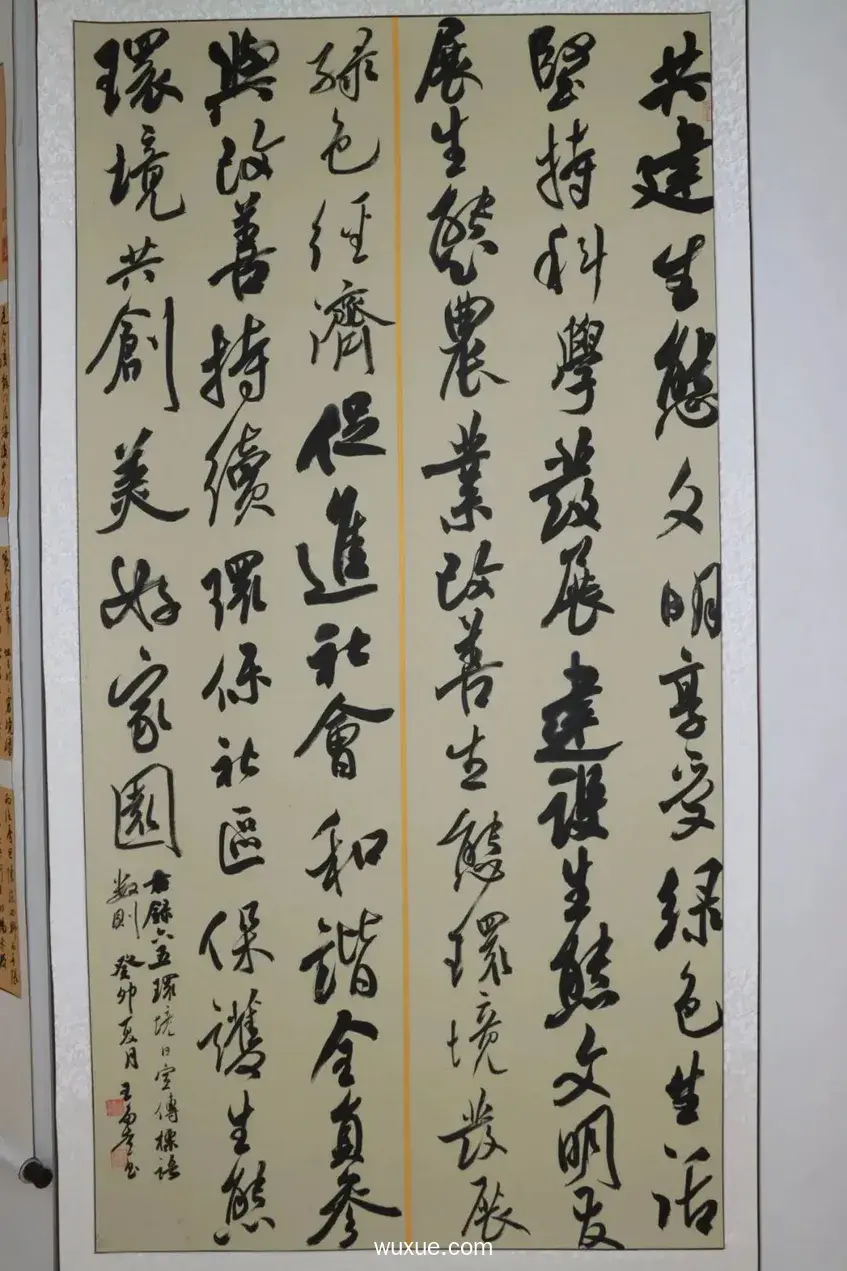 共建生態文明享受绿色生活
堅持科學發展建設生態文明发
展生態農業改善生態環境發展
绿色經濟促進社會和諧全員參
與改善持續環保社區保護生態
環境共創美好家園
右錄六五環境日宣傳標語
数則 癸卯夏月 王书
wuxue.com